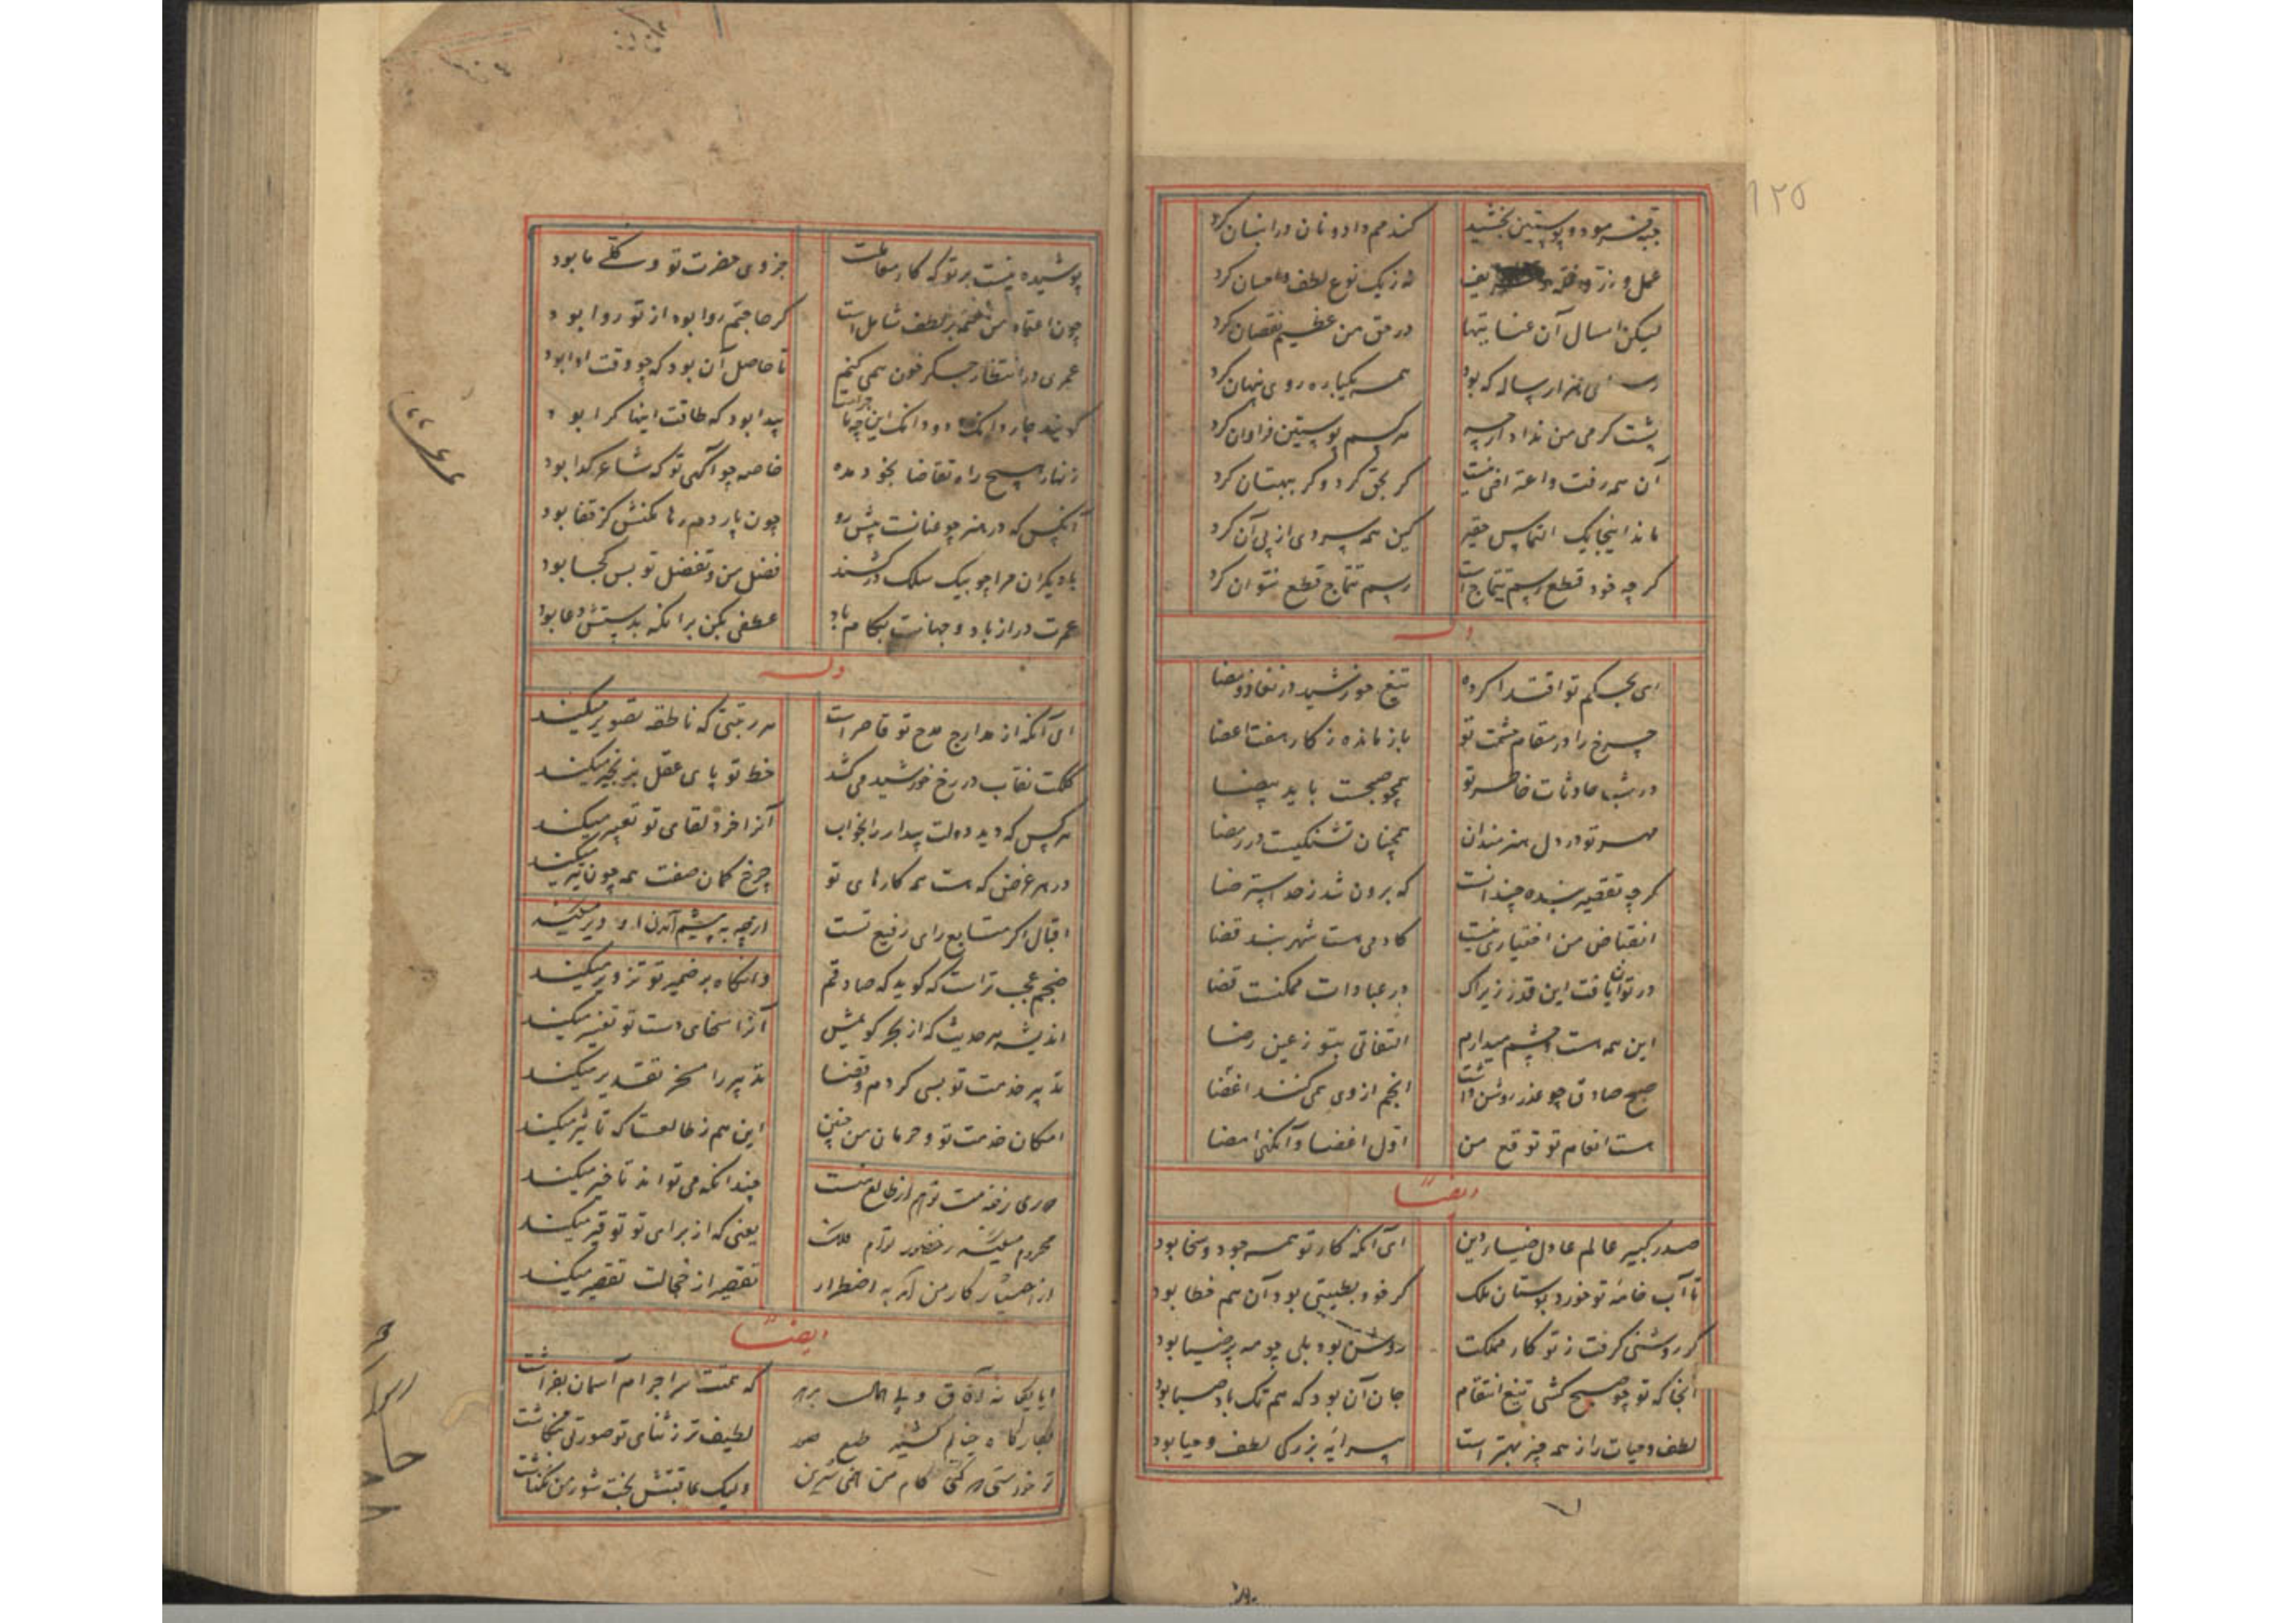 ۱۲۵
جبه فرمود و پوستین بخشید گندمم داد و نان در انبان کرد
نه ز یک نوع لطف و احسان کرد
لیکن امسال آن عنایتها در حق من عظیم نقصان کرد
همه یکباره روی پنهان کرد
پشت گرمی من نداد ارچه هر کسم پوستین فراوان کرد
آن همه رفت و اعتراضی نیست گر بحق کرد و گر ببهتان کرد
ماند اینجا یک التماس حقیر کین همه سردی از پی آن کرد
گر چه خود قطع رسم تتماج است رسم تتماج قطع نتوان کرد
وله
ای بحکم تو اقتدا کرده تیغ خورشید در نفاذ و مضا
چرخ را در مقام حشمت تو باز مانده ز کار هفت اعضا
در شب حادثات خاطر تو همچو صبحست با ید بیضا
مهر تو در دل هنرمندان همچنان تشنگیست در رمضا
گر چه تقصیر بنده چندانست که برون شد ز حد استرضا
انقباض من اختیاری نیست کادمی هست شهربند قضا
در توان یافت این قدر زیراک در عبادات ممکنست قضا
این همه هست و چشم میدارم التفاتی بتو ز عین رضا
صبح صادق چو عذر روشن داشت انجم از وی همی کنند اغضا
هست انعام تو توقع من اول اغضا و آنگهی امضا
ایضا
صدر کبیر عالم عادل ضیاء دین ای آنکه کار تو همه جود و سخا بود
تا آب خامهٔ تو خورد بوستان ملک گر خود بطیبتی بود آن هم خطا بود
گر روشنی گرفت ز تو کار مملکت روشن بود بلی چو مه پر ضیا بود
آنجا که تو چو صبح کشی تیغ انتقام جان آن بود که هم تک باد صبا بود
لطف و حیات را ز همه چیز بهتر است پیرایهٔ بزرگی لطف و حیا بود
پوشیده نیست بر تو که کار جزوی حضرت تو و کلی ما بود
چون اعتماد من همه بر لطف شامل است گر حاجتم روا بود از تو روا بود
عمری در انتظار جگر خون همی کنیم تا حاصل آن بود که چو وقت ادا بود
گویند چار دانگ و دو دانگ این چه ماجراست پیدا بود که طاقت اینها کرا بود
زنهار هیچ راه تقاضا بخود مده خاصه چو آگهی تو که شاعر گدا بود
آنکس که در هنر چو عنانت پیش رو چون پاردم رها مکنش کز قفا بود
با دیگران مرا چو بیک سلک درکشند فضل من و تفضل تو بس کجا بود
عمرت دراز باد و جهانت بکام باد عطفی بکن بر آنکه بدستش دعا بود
وله
ای آنکه از مدارج مدح تو قاصر است هر رتبتی که ناطقه تصویر میکند
کلکت نقاب در رخ خورشید می کشد خط تو پای عقل بزنجیر میکند
هر کس که دید دولت بیدار را بخواب آنرا خرد لقای تو تعبیر میکند
در هر غرض که هست همه کارهای تو چرخ کمان صفت همه چون تیر میکند
اقبال اگر متابع رای رفیع تست ارچه به پیشم آمدن او دیر میکند
صبحم عجب تر است که گوید که صادقم وانگاه بر ضمیر تو تزویر میکند
اندیشه هر حدیث که از بحر گویمش آنرا سخای دست تو تفسیر میکند
تدبیر خدمت تو بسی کردم و قضا تدبیر را مسخر تقدیر میکند
امکان خدمت تو و حرمان من چنین این هم ز طالعست که تاثیر میکند
چندانکه می تواند تاخیر میکند
یعنی که از برای تو توقیر میکند
تقصیر از خجالت تقصیر میکند
ایضا
که همتت سر اجرام آسمان بفراشت
لطیف تر ز ثنای تو صورتی ننگاشت
ولیک عاقبتش بخت شور من نگذاشت